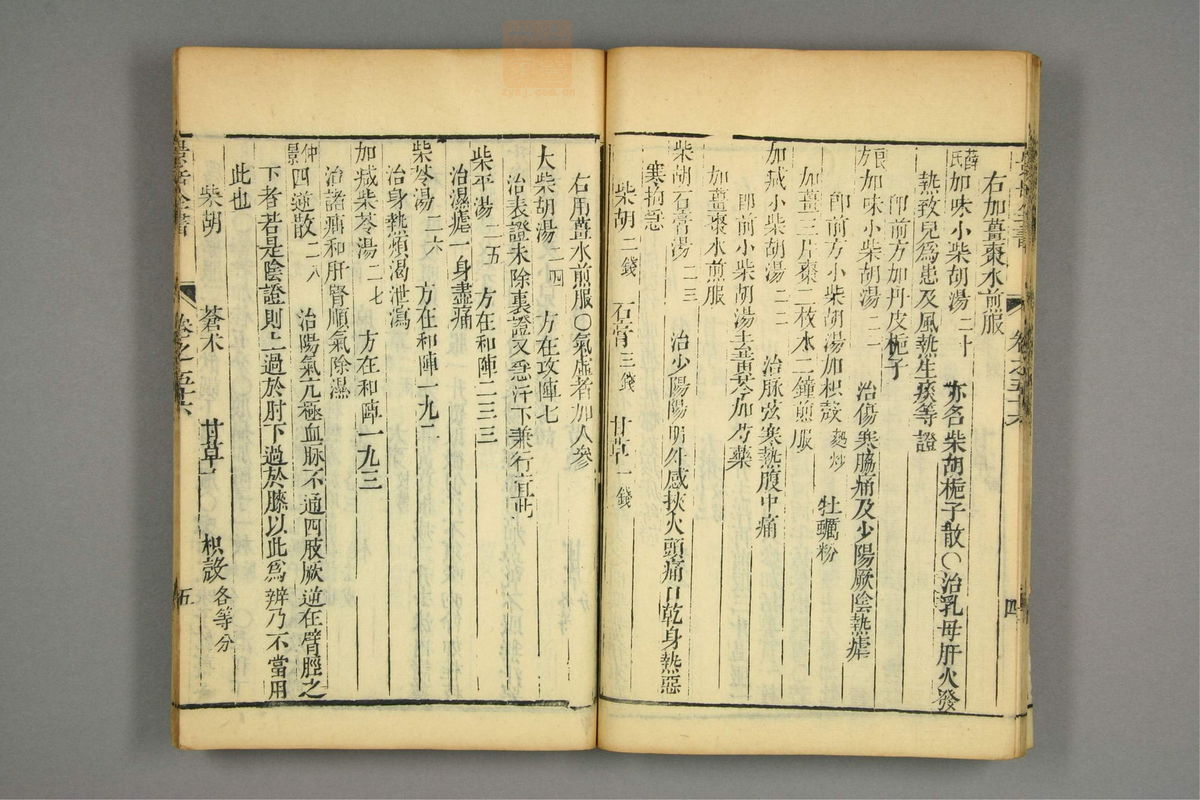 右加薑棗水煎服
薛氏加味小柴胡湯二十　亦名柴胡梔子散〇治乳母肝火發
熱致兒爲患及風熱生痰等證
卽前方加丹皮梔子
良方加味小柴胡湯二一　治傷寒脇痛及少陽厥陰熱瘧
卽前方小柴胡湯加枳殼麩炒　牡蠣粉
加薑三片棗二枚水二鐘煎服
加減小柴胡湯二二　治脉弦寒熱腹中痛
卽前小柴胡湯去黃芩加芍藥
加薑棗水煎服
柴胡石膏湯二三　治少陽陽明外感挾火頭痛口乾身熱惡
寒拘急
柴胡二錢　石膏三錢　甘草一錢
右用薑水煎服〇氣虛者加人參
大柴胡湯二四　方在攻陣七
治表證未除裏證又急汗下兼行宜此
柴平湯二五　方在和陣二三三
治濕瘧一身盡痛
柴苓湯二六　方在和陣一九二
治身熱煩渴泄瀉
加減柴苓湯二七　方在和陣一九三
治諸疝和肝腎順氣除濕
仲景四逆散二八　治陽氣亢極血脉不通四肢厥逆在臂脛之
下者若是陰證則上過於肘下過於膝以此爲辨乃不當用
此也
柴胡　蒼朮　甘草　枳殼各等分
景岳全書　卷之五十六　五